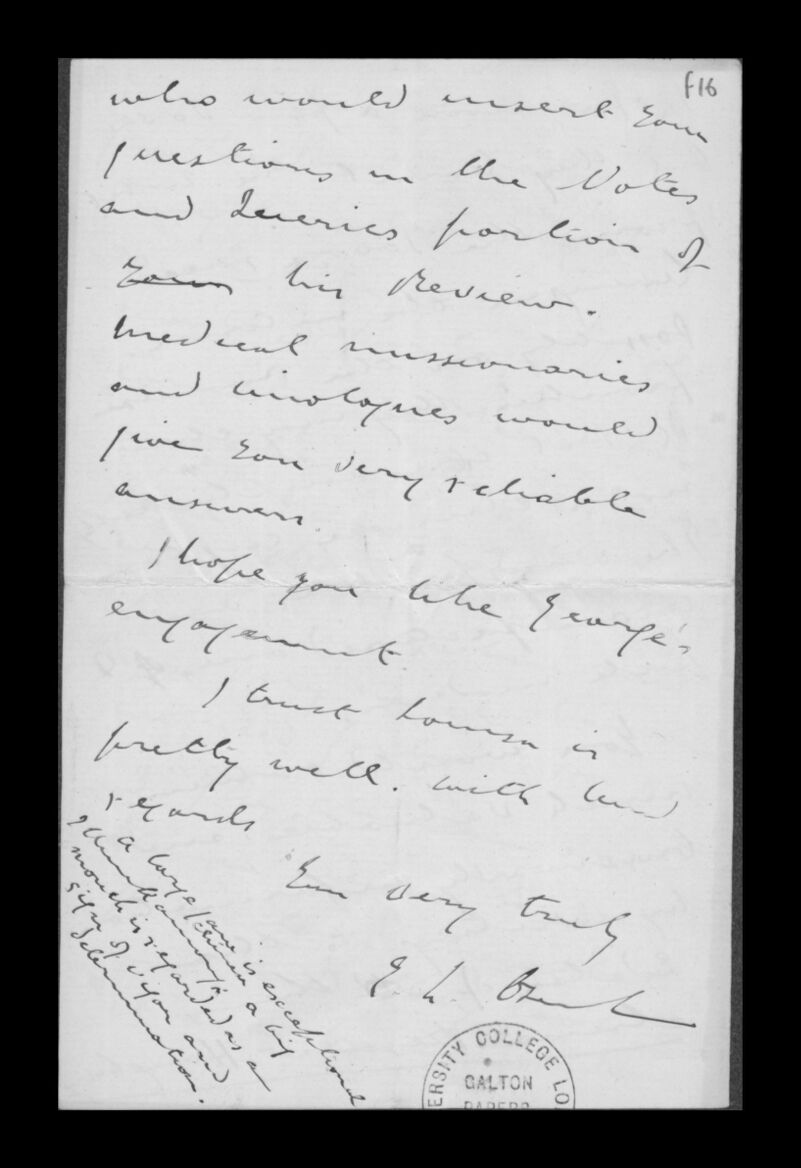 f16
who would insert your
questions in the Notes
and Queries portion of
your his Review.
Medical missionaries
and sinologues would
give you very reliable
answers.
I hope you like George's
engagement.
I trust Louisa is
pretty well. With kind
regards
Ever very truly
a large jaw is exceptional
I think among
mouth is regarded as a
sign of vigor and
determination.
ERSITY COLLEGE LO
GALTON
PAPERS